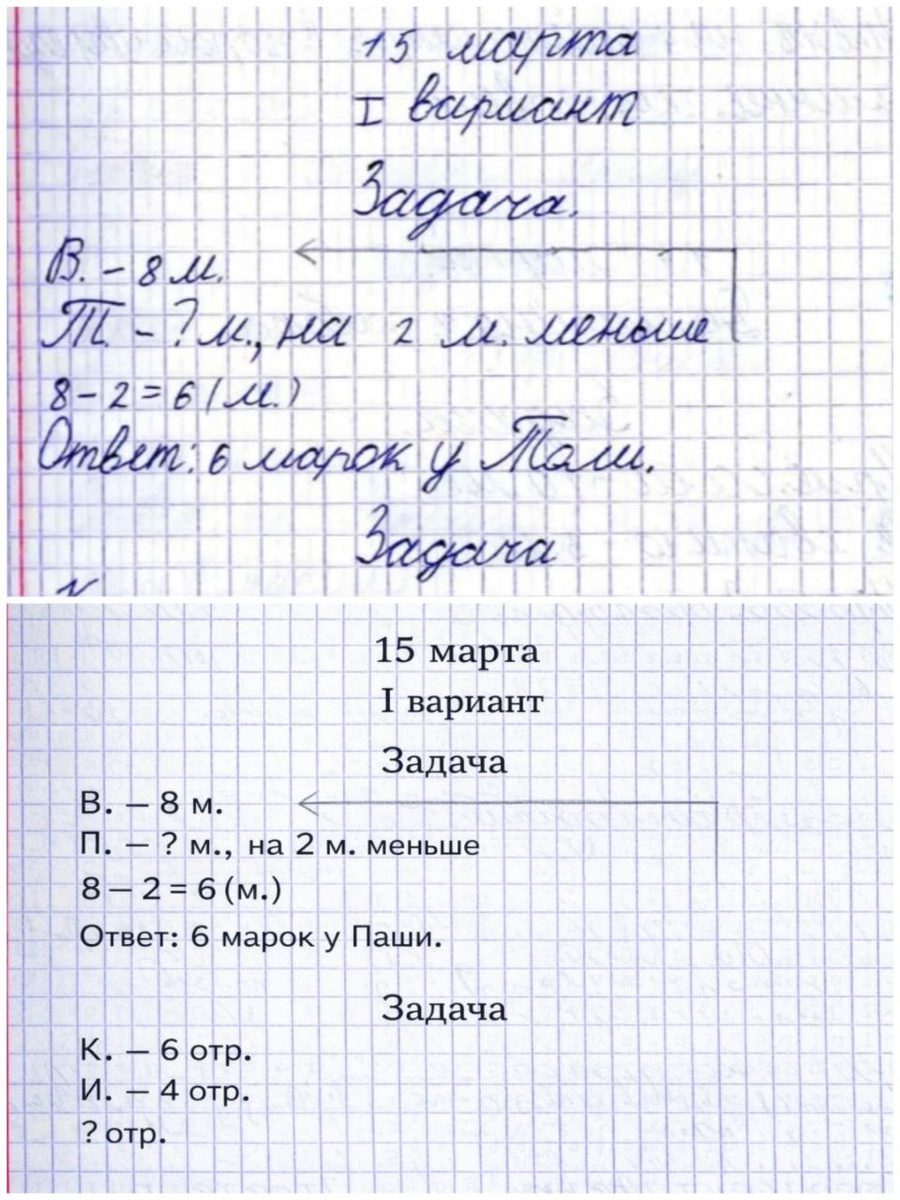 15 марта
I вариант
Задача.
В. – 8 м.
Т. – ? м., на 2 м. меньше
8 – 2 = 6 (м.)
Ответ: 6 марок у Толи.
Задача
15 марта
I вариант
Задача
В. — 8 м.
П. — ? м., на 2 м. меньше
8 — 2 = 6 (м.)
Ответ: 6 марок у Паши.
Задача
К. — 6 отр.
И. — 4 отр.
? отр.